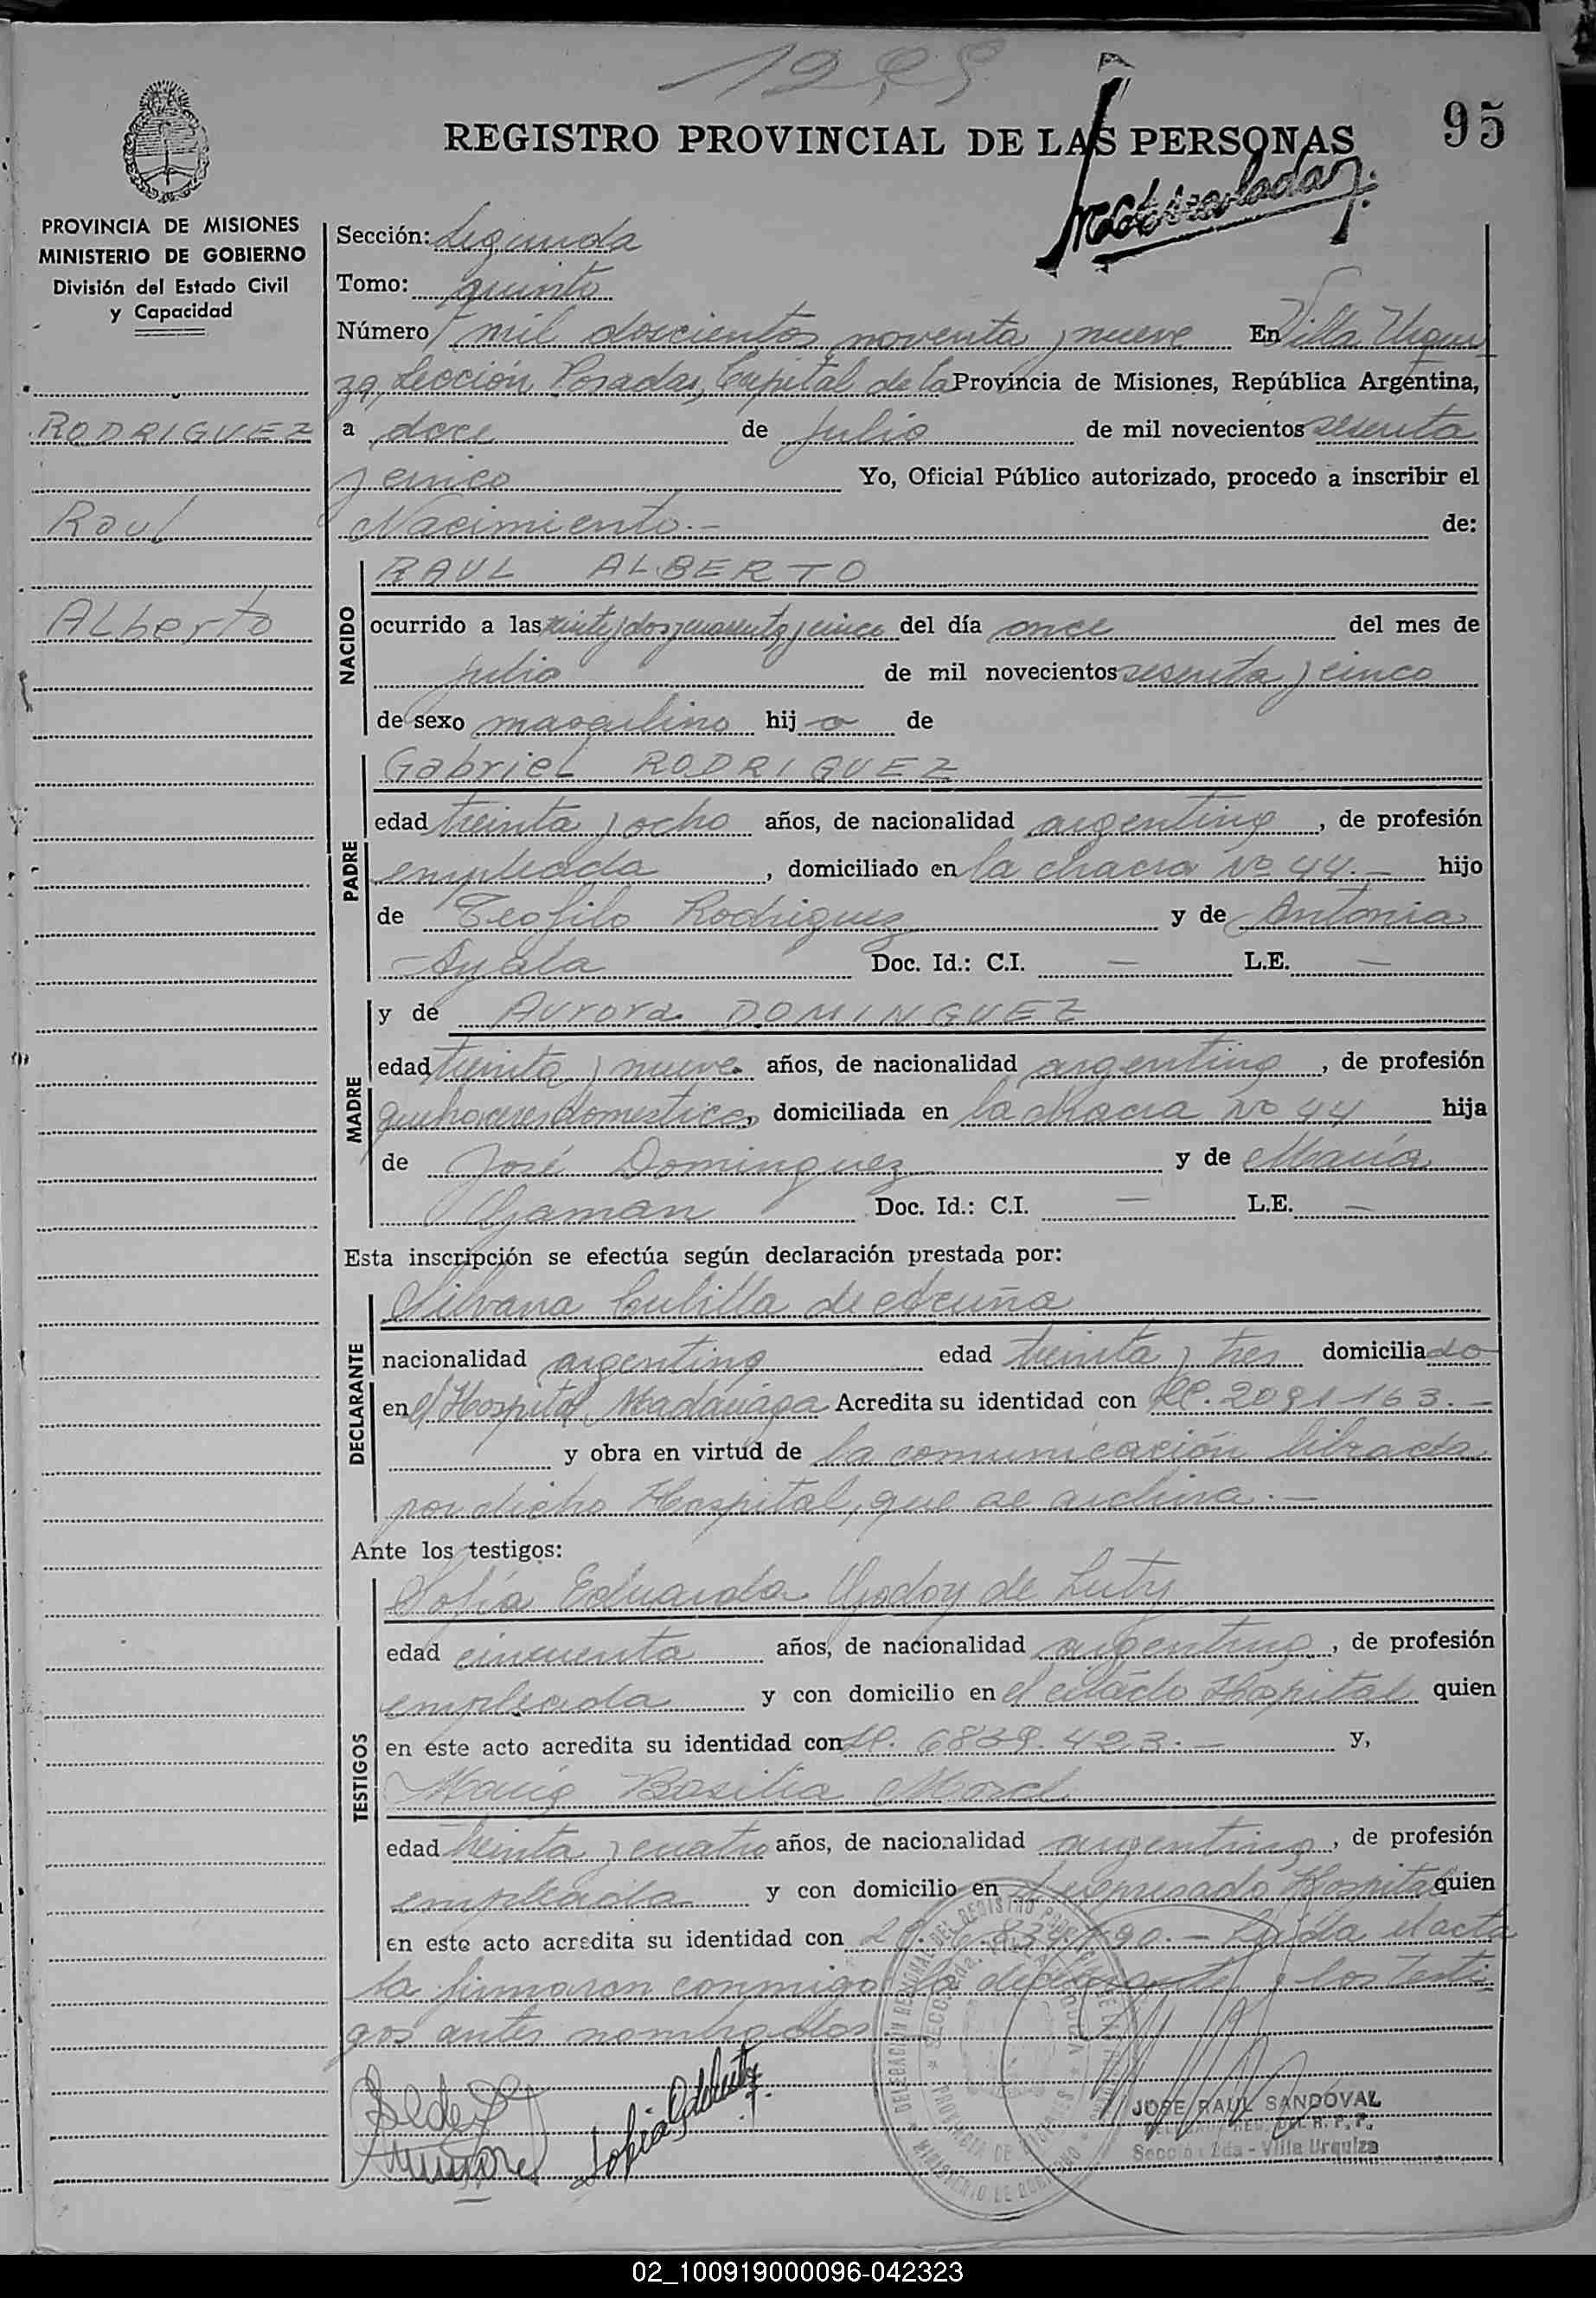 95
REGISTRO PROVINCIAL DE LAS PERSONAS
PROVINCIA DE MISIONES
MINISTERIO DE GOBIERNO
División del Estado Civil
y Capacidad
RODRIGUEZ
Raul
Alberto
Sección: Segunda
Tomo: quinto
Número mil doscientos noventa y nueve En Villa Urqui
za, Sección Posadas, Capital de la Provincia de Misiones, República Argentina,
a doce de julio de mil novecientos sesenta
y cinco Yo, Oficial Público autorizado, procedo a inscribir el
Nacimiento.- de:
NACIDO
RAUL ALBERTO
ocurrido a las veinte y dos y cuarenta y cinco del día once del mes de
julio de mil novecientos sesenta y cinco
de sexo masculino hij o de
PADRE
Gabriel RODRIGUEZ
edad treinta y ocho años, de nacionalidad argentina, de profesión
empleada, domiciliado en la chacra Nº 44.- hijo
de Teofilo Rodriguez y de Antonia
Ayala Doc. Id.: C.I. — L.E. —
MADRE
y de Aurora DOMINGUEZ
edad treinta y nueve años, de nacionalidad argentina, de profesión
quehaceres domestico, domiciliada en la chacra Nº 44 hija
de José Dominguez y de María
Doc. Id.: C.I. — L.E. —
Esta inscripción se efectúa según declaración prestada por:
DECLARANTE
Silvana Cubilla de Acuña
nacionalidad argentina edad treinta y tres domicilia do
en el Hospital Madariaga Acredita su identidad con 2091163.-
y obra en virtud de la comunicación librada
por dicho Hospital, que se archiva.-
Ante los testigos:
TESTIGOS
Sofía Eduarda Godoy de Luty
edad cincuenta años, de nacionalidad argentina, de profesión
empleada y con domicilio en el citado Hospital quien
en este acto acredita su identidad con 6839.423.- y,
María Basilia Morel
edad treinta y cuatro años, de nacionalidad argentina, de profesión
empleada y con domicilio en el expresado Hospital quien
en este acto acredita su identidad con Leída el acta
la firmaron conmigo la declarante y los testi
gos antes nombrados.
JOSE RAUL SANDOVAL
DELEGADO REG. DEL R. P. P.
Sección 2da - Villa Urquiza
02_100919000096-042323